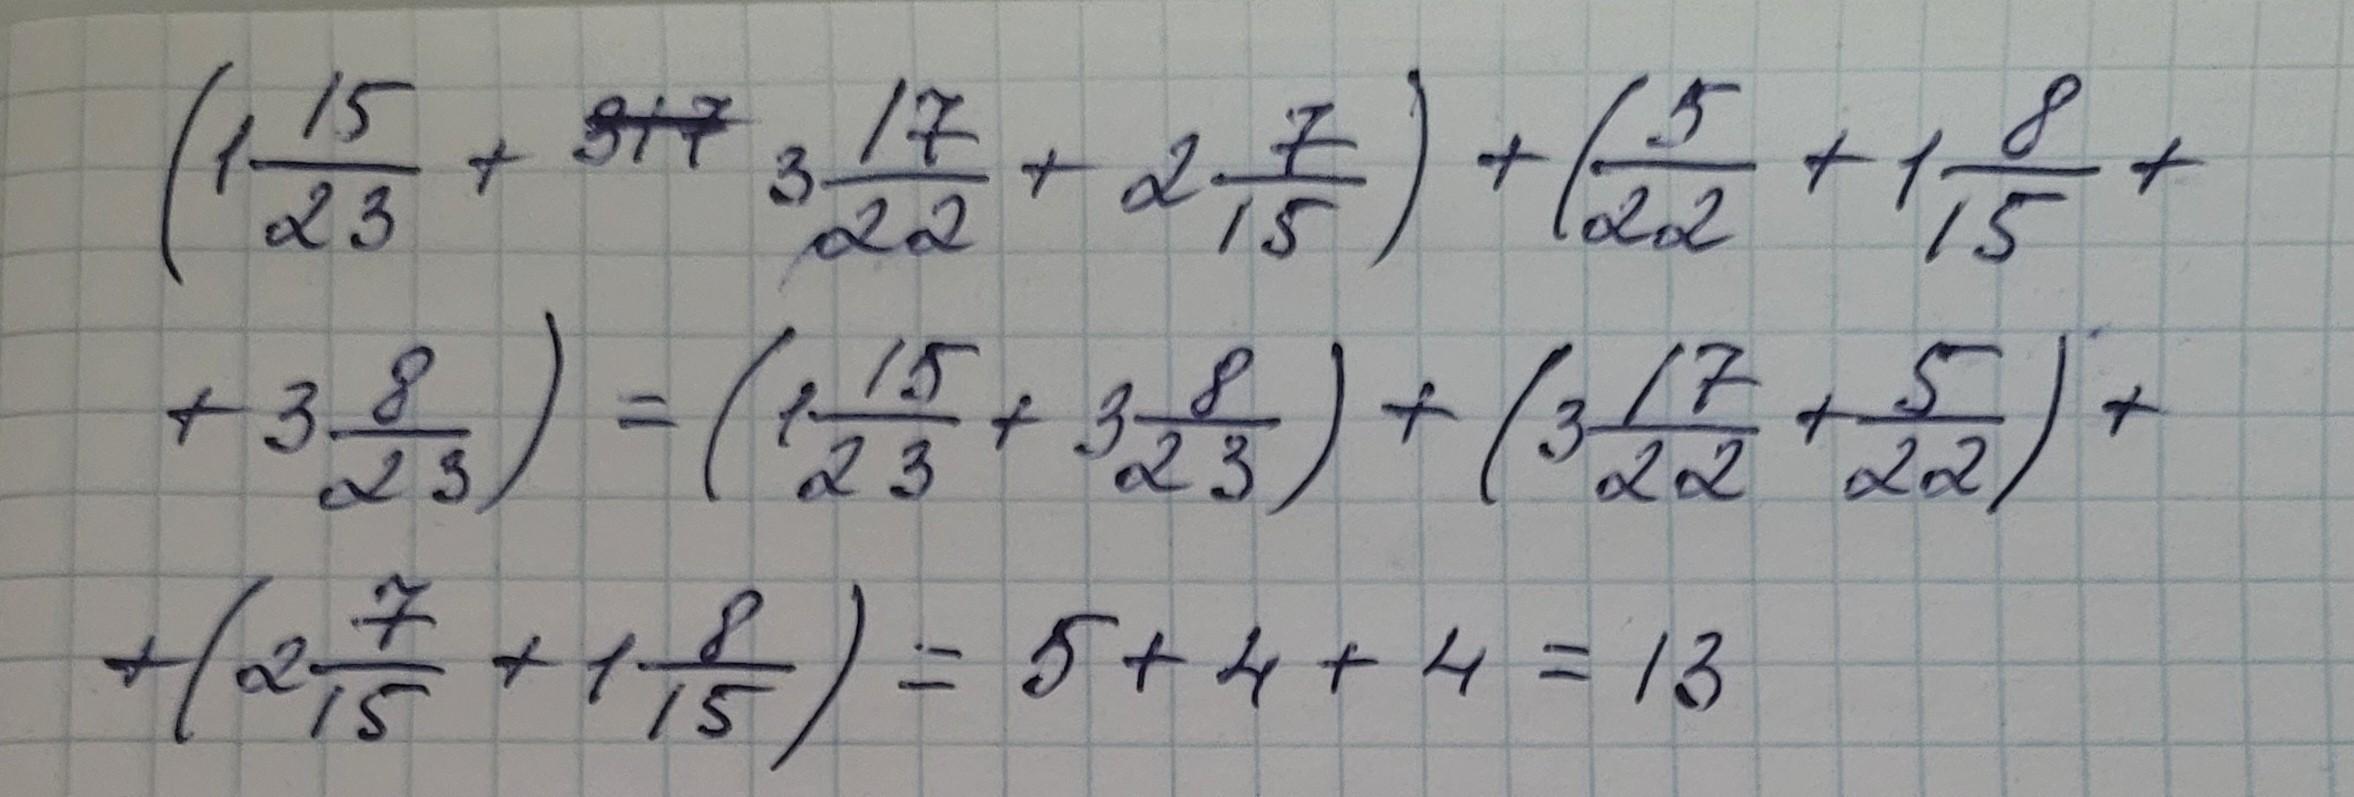 (1 15/23 + 3 17/22 + 2 7/15) + (5/22 + 1 8/15 +
+ 3 8/23) = (1 15/23 + 3 8/23) + (3 17/22 + 5/22) +
+ (2 7/15 + 1 8/15) = 5 + 4 + 4 = 13